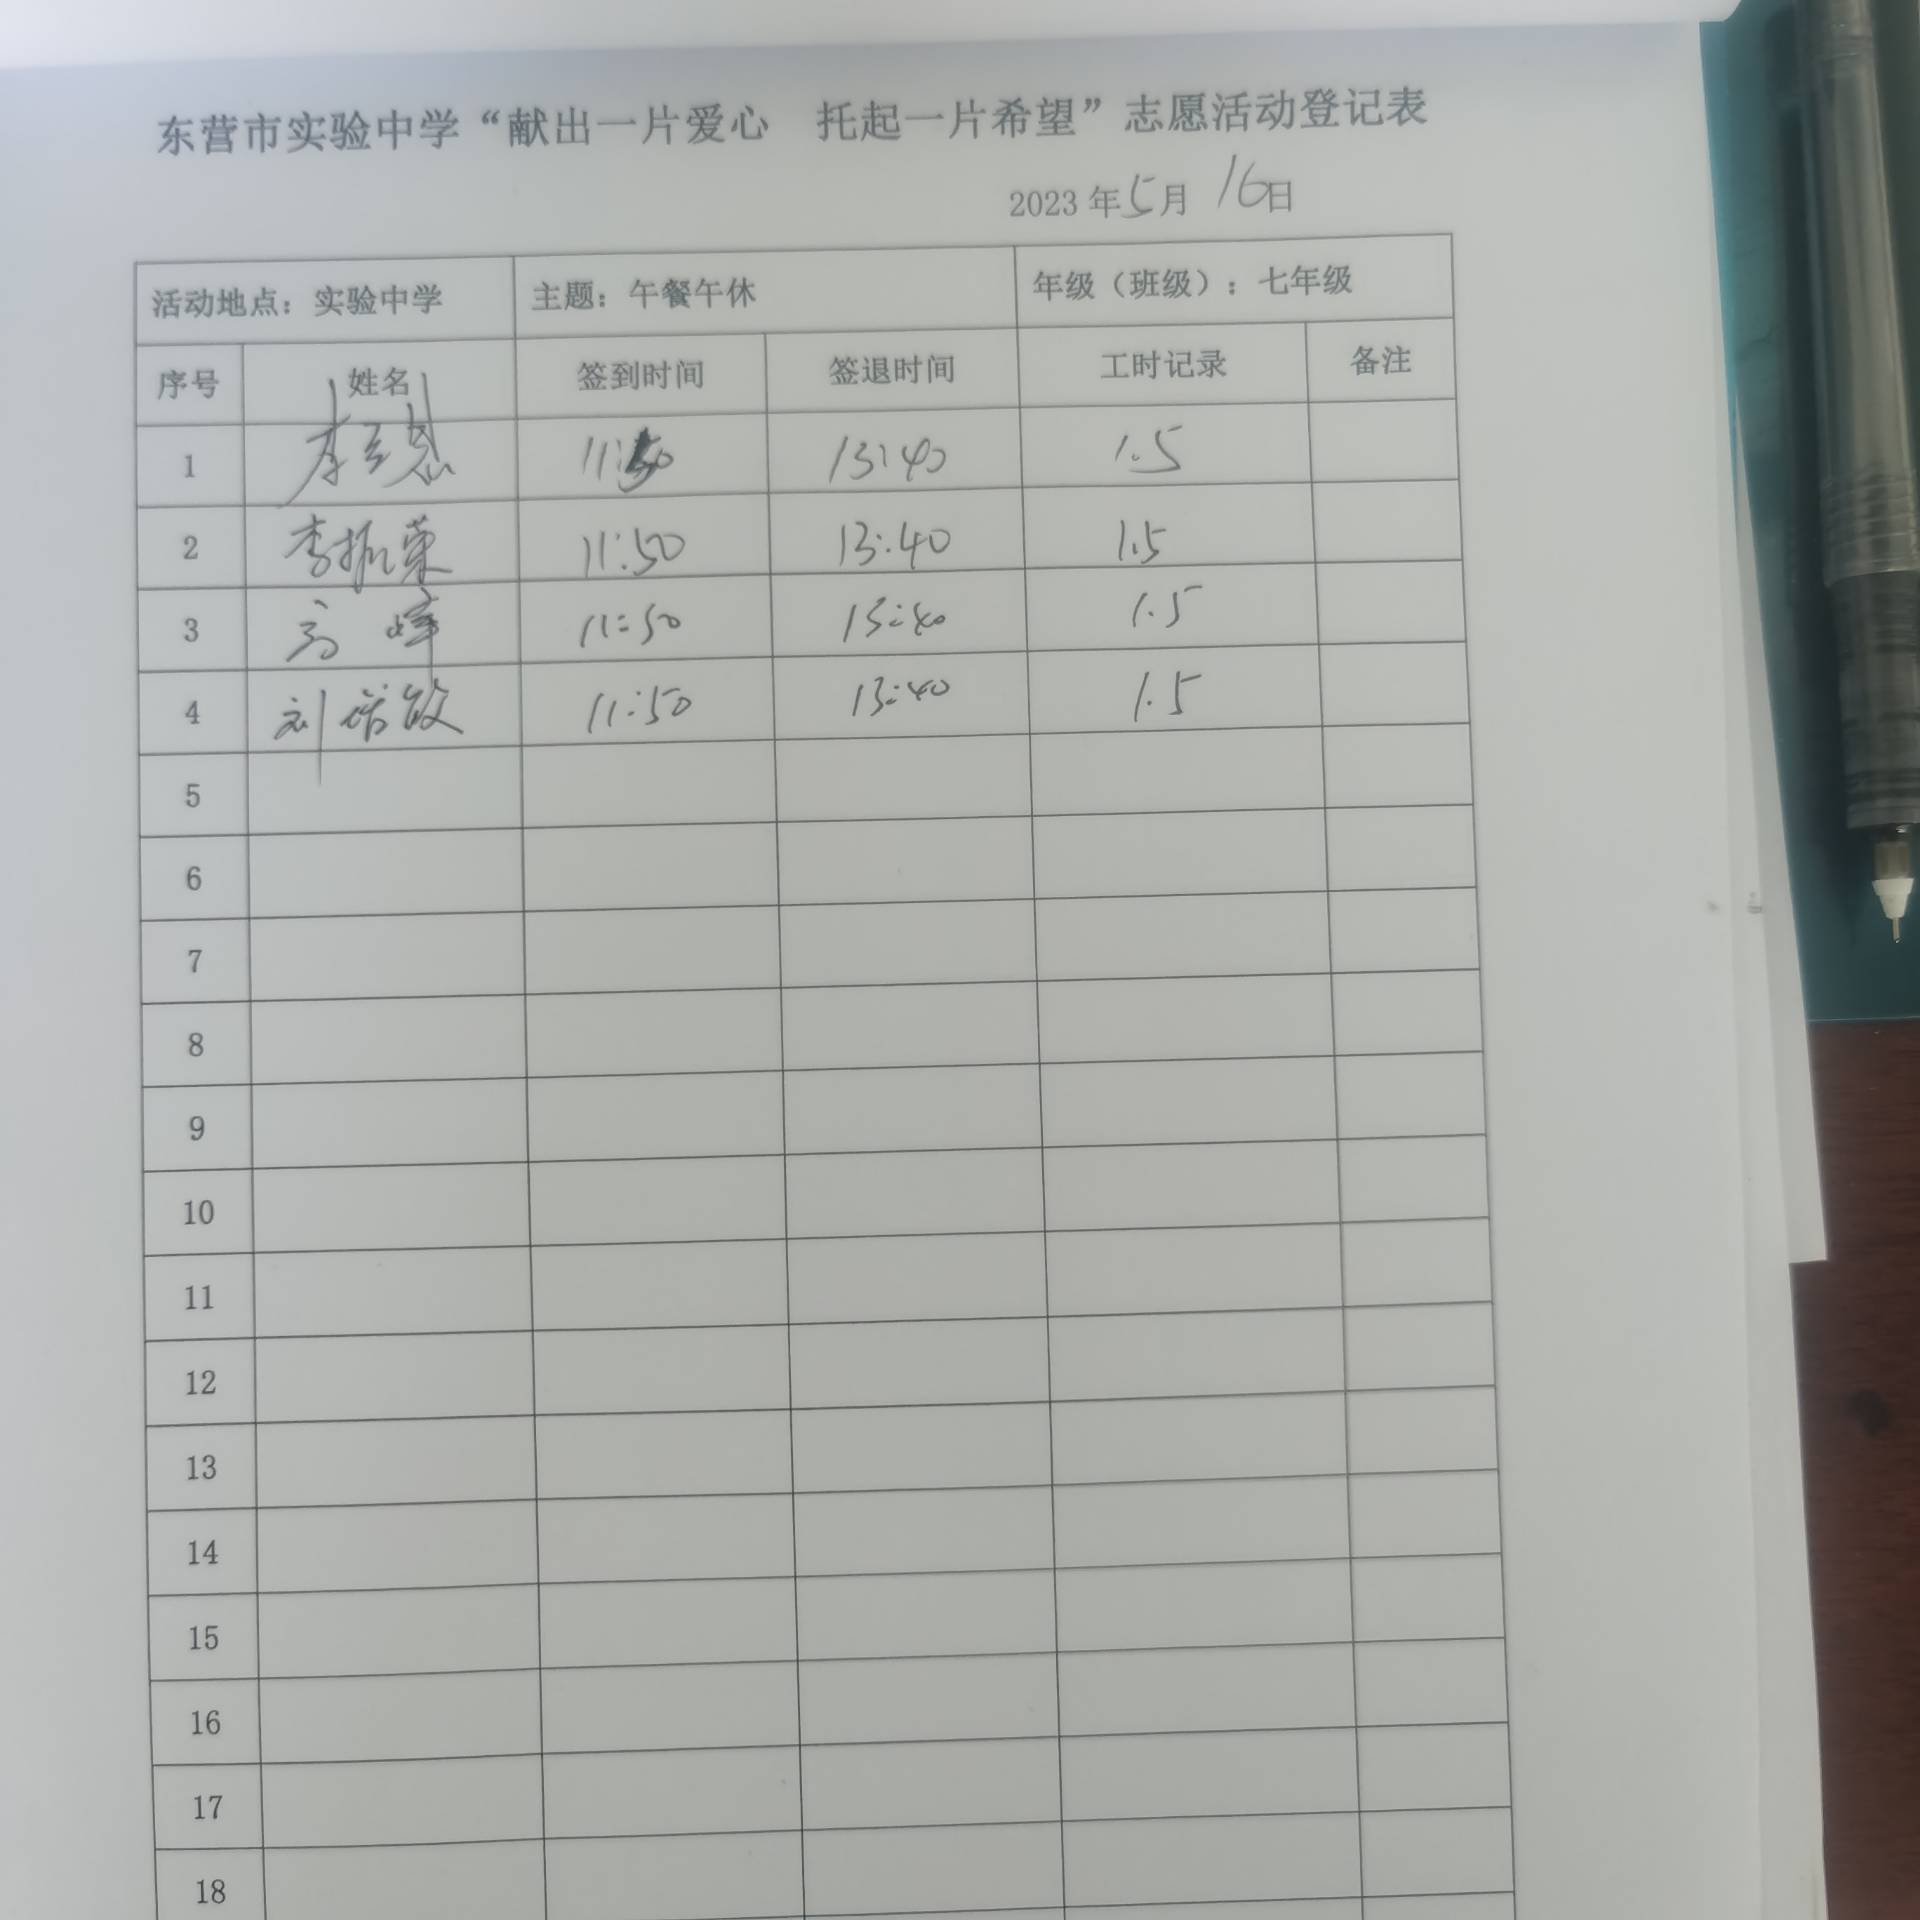 东营市实验中学“献出一片爱心 托起一片希望”志愿活动登记表
2023年5月16日
活动地点：实验中学 主题：午餐午休 年级（班级）：七年级
序号 姓名 签到时间 签退时间 工时记录 备注
1 李 11:50 13:40 1.5
2 李振荣 11:50 13:40 1.5
3 高峰 11:50 13:40 1.5
4 刘 11:50 13:40 1.5
5
6
7
8
9
10
11
12
13
14
15
16
17
18